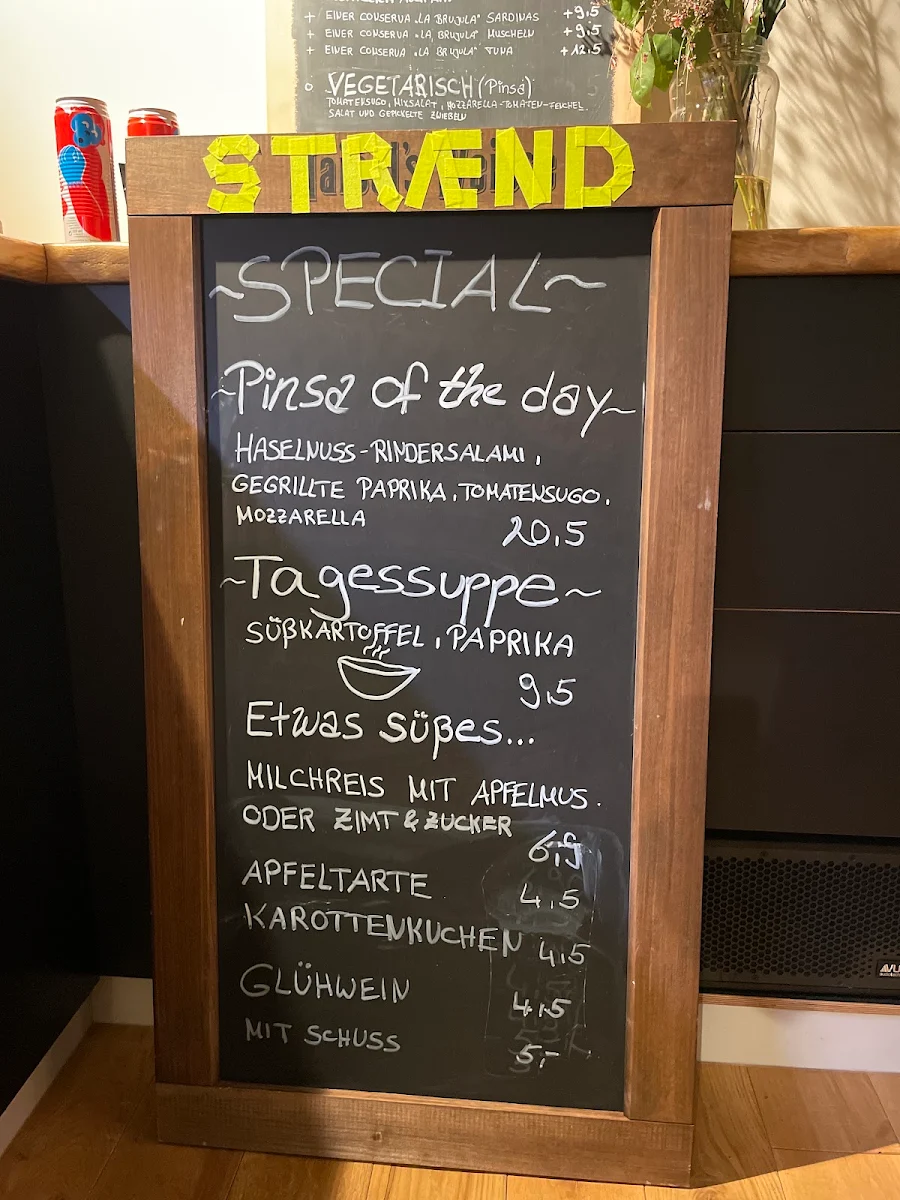 + EINER CONSERVA „LA BRUJULA" SARDINAS +9,5
+ EINER CONSERVA „LA BRUJULA" MUSCHELN +9,5
+ EINER CONSERVA „LA BRUJULA" TUNA +12,5
VEGETARISCH (Pinsa)
TOMATENSUGO, MIXSALAT, MOZZARELLA-TOMATEN-FENCHEL
SALAT UND GEPICKELTE ZWIEBELN
STRÆND
~SPECIAL~
~Pinsa of the day~
HASELNUSS-RINDERSALAMI,
GEGRILLTE PAPRIKA, TOMATENSUGO,
MOZZARELLA 20,5
~Tagessuppe~
SÜßKARTOFFEL, PAPRIKA
9,5
Etwas süßes...
MILCHREIS MIT APFELMUS.
ODER ZIMT & ZUCKER
APFELTARTE 4,5
KAROTTENKUCHEN 4,5
GLÜHWEIN 4,5
MIT SCHUSS 5,-